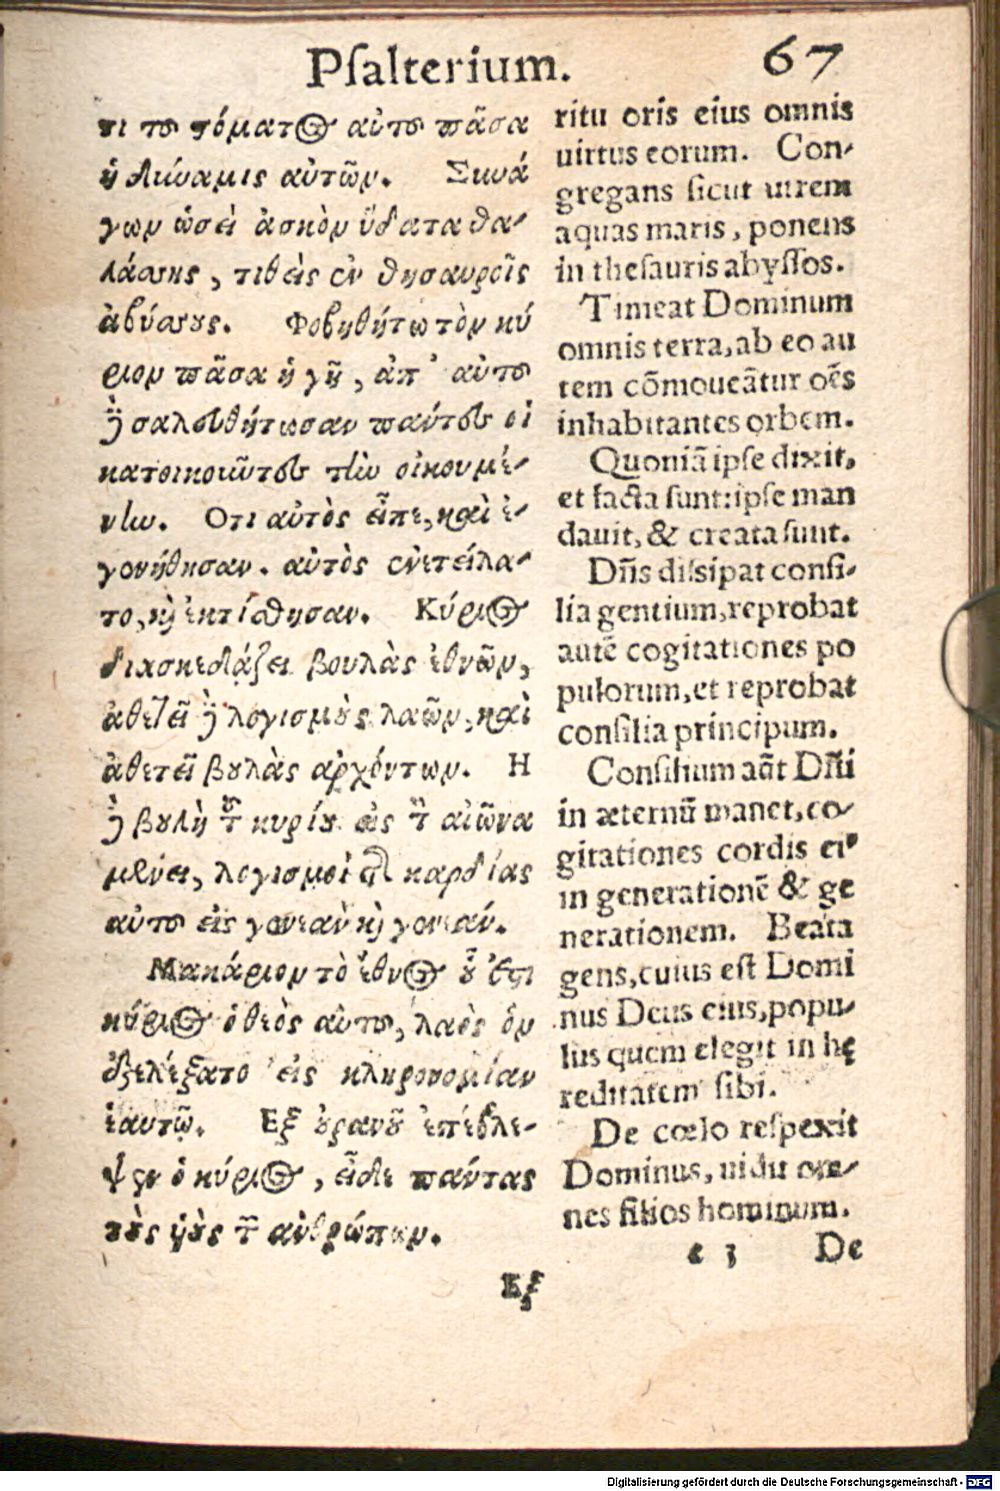 Psalterium. 67
τι τοῦ στόματος αὐτοῦ πᾶσα
ἡ δύναμις αὐτῶν. Συνά
γων ὡσεὶ ἀσκὸν ὕδατα θα-
λάσσης, τιθεὶς ἐν θησαυροῖς
ἀβύσσους. Φοβηθήτω τὸν κύ
ριον πᾶσα ἡ γῆ, ἀπ' αὐτοῦ
δὲ σαλευθήτωσαν πάντες οἱ
κατοικοιῶντες τὴν οἰκουμέ-
νην. Οτι αὐτὸς εἶπε, καὶ ἐ-
γενήθησαν. αὐτὸς ἐνετείλα-
το, καὶ ἐκτίσθησαν. Κύριος
διασκεδάζει βουλὰς ἐθνῶν,
ἀθετεῖ δὲ λογισμοὺς λαῶν, καὶ
ἀθετεῖ βουλὰς ἀρχόντων. Η
δὲ βουλὴ τοῦ κυρίου εἰς τὸν αἰῶνα
μένει, λογισμοὶ τῆς καρδίας
αὐτοῦ εἰς γενεὰν καὶ γενεάν.
Μακάριον τὸ ἔθνος οὗ ἐστι
κύριος ὁ θεὸς αὐτοῦ, λαὸς ὃν
ἐξελέξατο εἰς κληρονομίαν
ἑαυτῷ. Εξ οὐρανοῦ ἐπέβλε-
ψεν ὁ κύριος, εἶδε πάντας
τοὺς υἱοὺς τῶν ἀνθρώπων.
Εξ
ritu oris eius omnis
uirtus eorum. Con-
gregans sicut utrem
aquas maris, ponens
in thesauris abyssos.
Timeat Dominum
omnis terra, ab eo au
tem cõmoueãtur oẽs
inhabitantes orbem.
Quoniã ipse dixit,
et facta sunt: ipse man
dauit, & creata sunt.
Dñs dissipat consi-
lia gentium, reprobat
autẽ cogitationes po
pulorum, et reprobat
consilia principum.
Consilium aũt Dñi
in æternũ manet, co-
gitationes cordis eiꝰ
in generationẽ & ge
nerationem. Beata
gens, cuius est Domi
nus Deus eius, popu-
lus quem elegit in hę
reditatem sibi.
De cœlo respexit
Dominus, uidit om-
nes filios hominum.
e 3 De
Digitalisierung gefördert durch die Deutsche Forschungsgemeinschaft - DFG